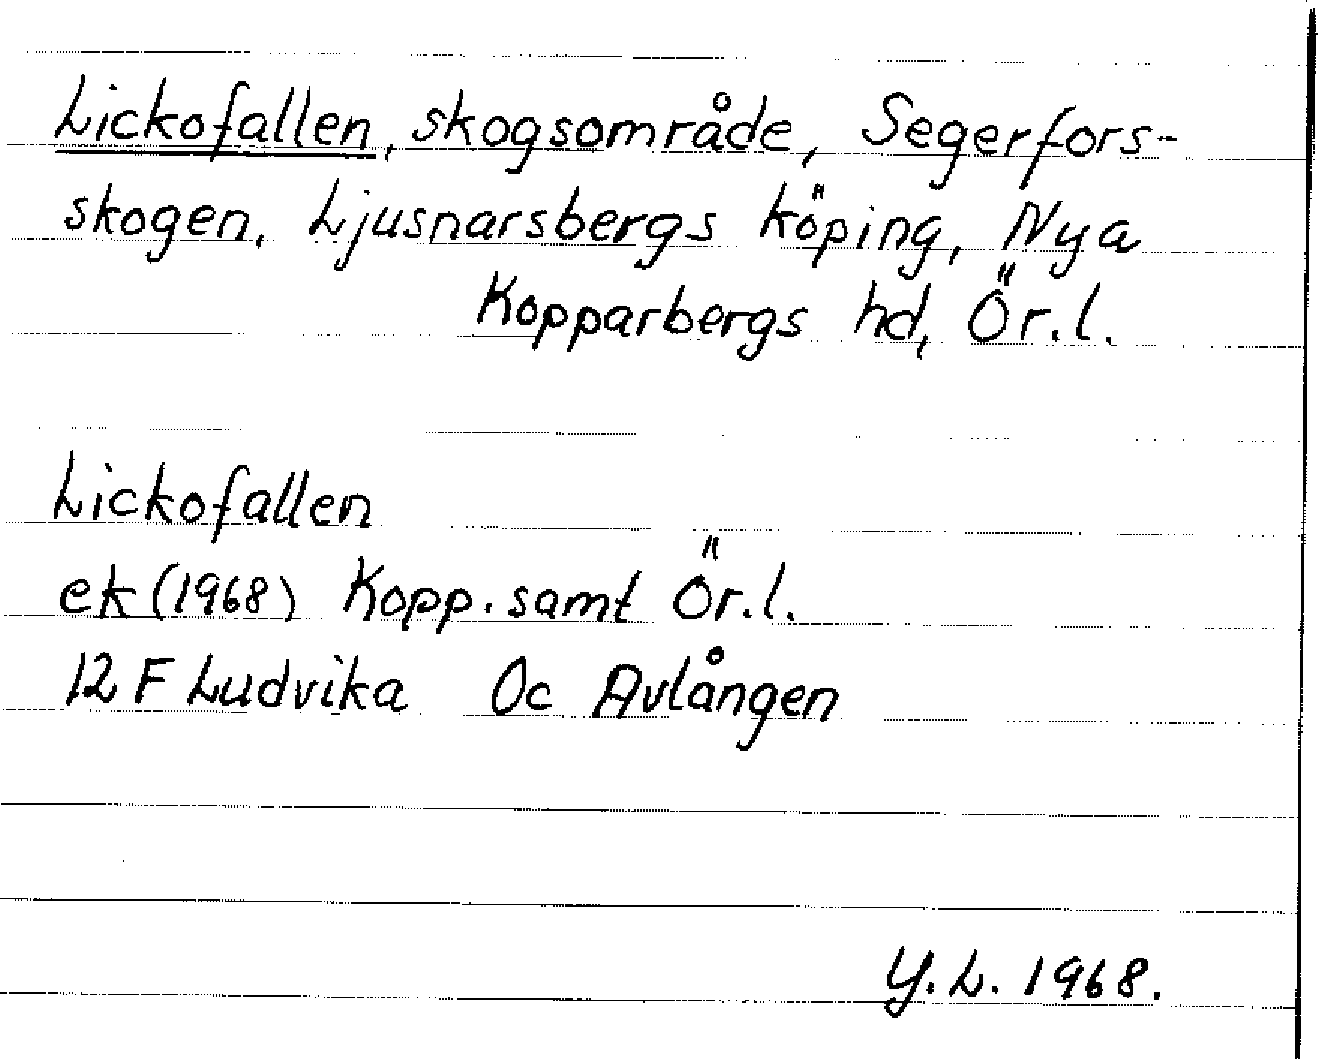 Lickofallen, skogsområde, Segerfors-
skogen, Ljusnarsbergs köping, Nya
Kopparbergs hd, Ör.l.
Lickofallen
ek (1968) Kopp. samt Ör.l.
12 F Ludvika Oc Avlången
Y.L. 1968.